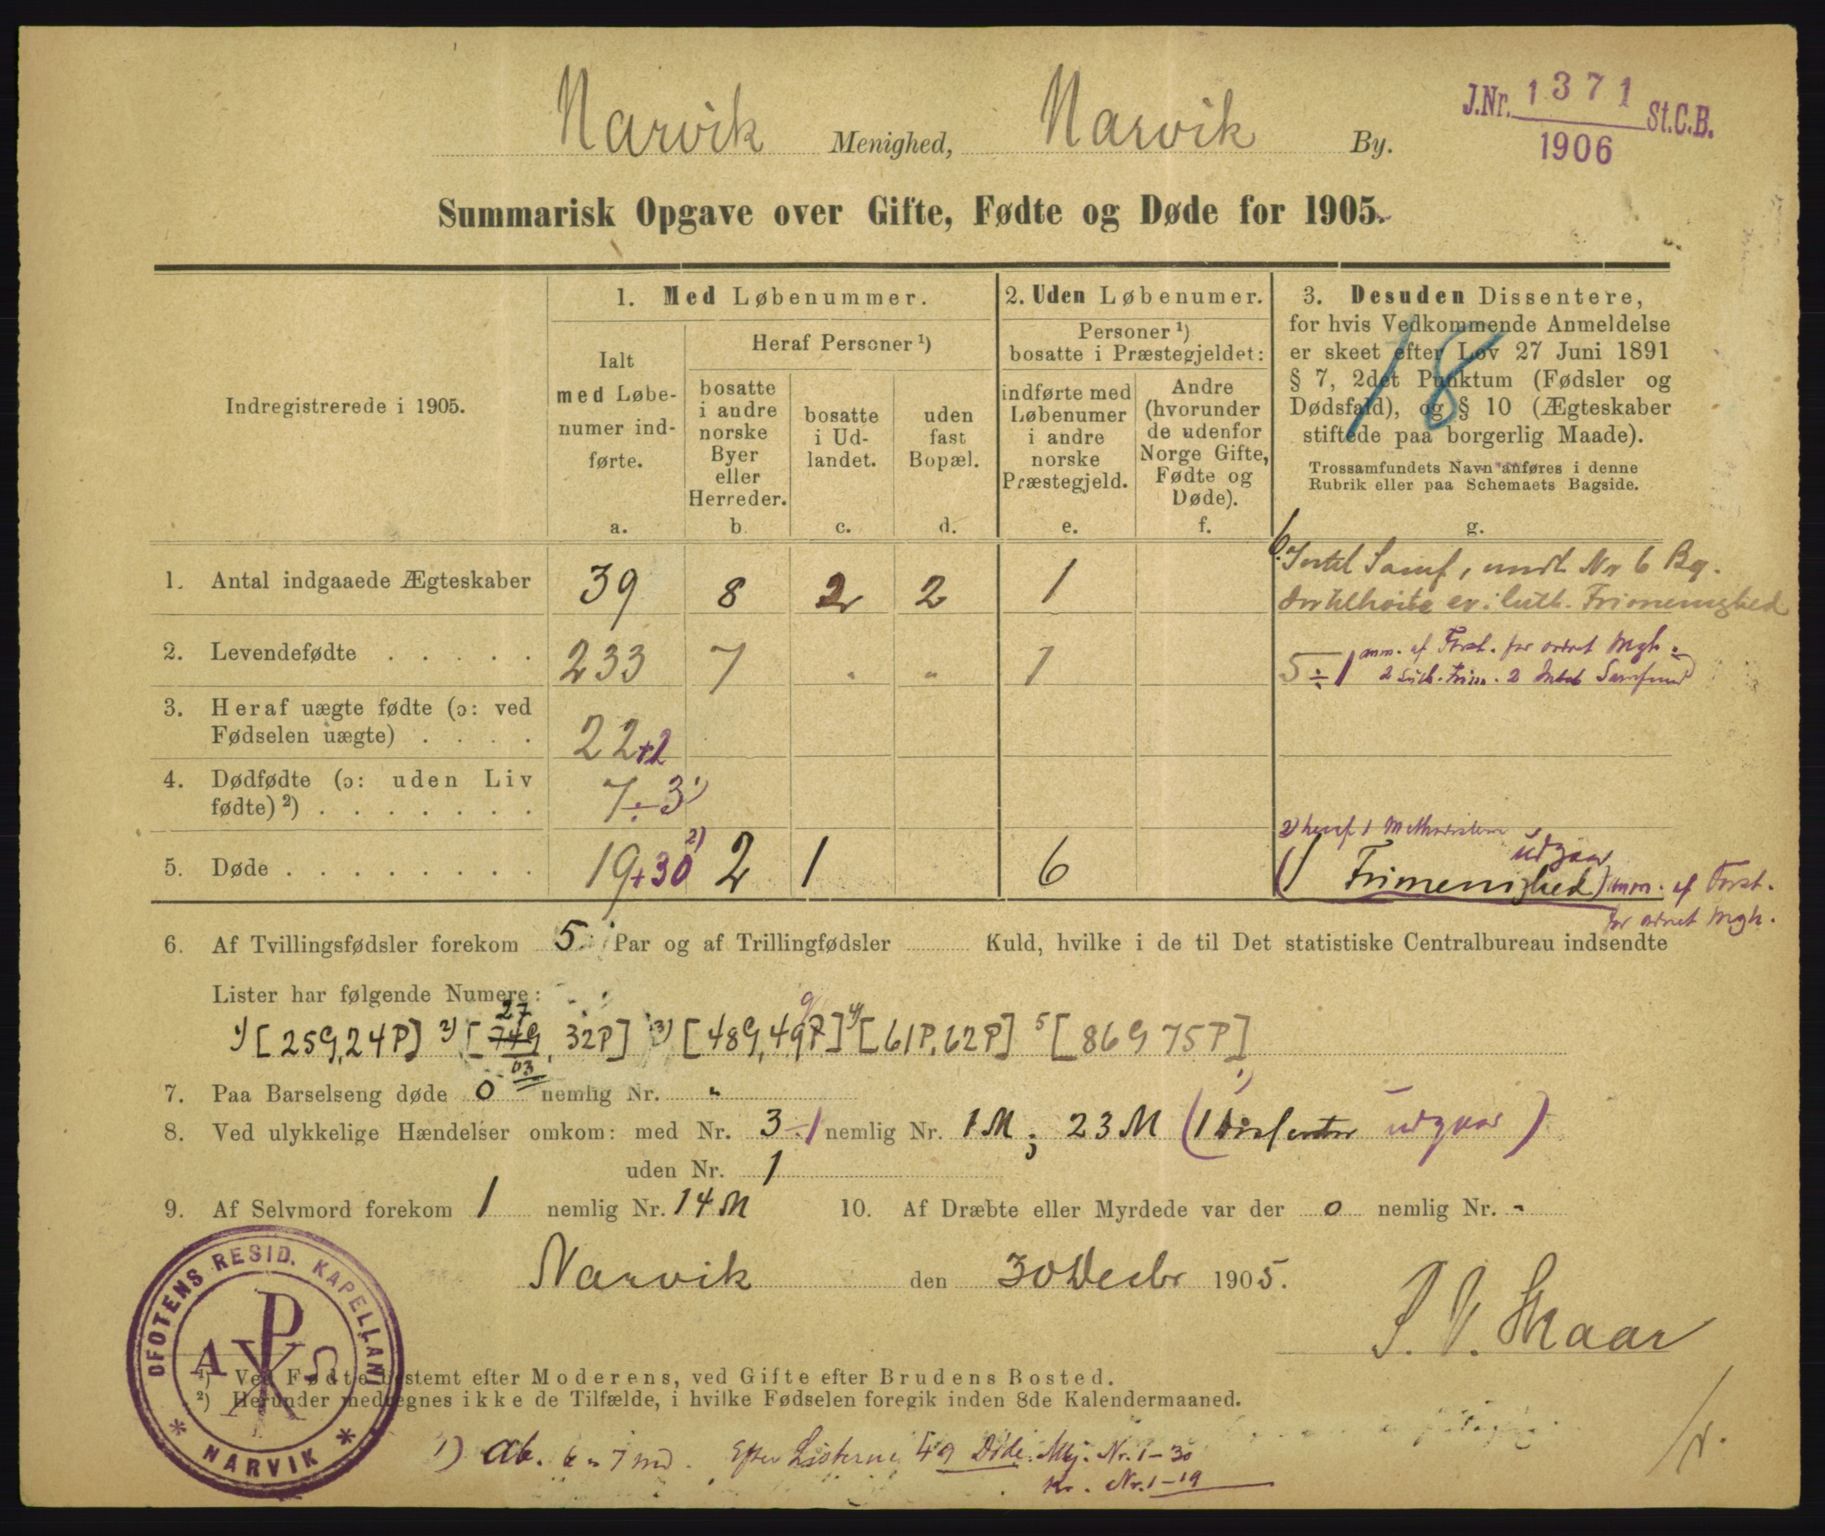 Narvik Menighed, Narvik By.
J.Nr. 1371 St.C.B.
1906
Summarisk Opgave over Gifte, Fødte og Døde for 1905.
Indregistrerede i 1905.
1. Med Løbenummer.
Ialt
med Løbe-
numer ind-
førte.
a.
Heraf Personer ¹)
bosatte
i andre
norske
Byer
eller
Herreder.
b.
bosatte
i Ud-
landet.
c.
uden
fast
Bopæl.
d.
2. Uden Løbenumer.
Personer ¹)
bosatte i Præstegjeldet:
indførte med
Løbenumer
i andre
norske
Præstegjeld.
e.
Andre
(hvorunder
de udenfor
Norge Gifte,
Fødte og
Døde).
f.
3. Desuden Dissentere,
for hvis Vedkommende Anmeldelse
er skeet efter Lov 27 Juni 1891
§ 7, 2det Punktum (Fødsler og
Dødsfald), og § 10 (Ægteskaber
stiftede paa borgerlig Maade).
Trossamfundets Navn anføres i denne
Rubrik eller paa Schemaets Bagside.
g.
18
1. Antal indgaaede Ægteskaber 39 8 2 2 1 6. Intet Samf, undt. Nr 6 Bg.
er i luth. Frimenighed
2. Levendefødte . . . . . 233 7 " " 1 5 ÷ 1 anm. af Forst. for ordnet Mgh.
2 Luth. Frim. 2 Intet Samfund
3. Heraf uægte fødte (ɔ: ved
Fødselen uægte) . . . . 22+2
4. Dødfødte (ɔ: uden Liv
fødte) ²) . . . . . . . 7÷3 ¹)
5. Døde . . . . . . . . 19+30 ²) 2 1 6
2) heraf 1 Methodist
(1 Frimenighed) udgaar anm. af Forst.
for ordnet Mgh.
6. Af Tvillingsfødsler forekom 5 Par og af Trillingfødsler Kuld, hvilke i de til Det statistiske Centralbureau indsendte
Lister har følgende Numere:
27
¹) [25G, 24P] ²) [74G, 32P] ³) [48G, 49P] ⁴) [61P, 62P] ⁵ [86G 75P]
03
7. Paa Barselseng døde 0 nemlig Nr. "
8. Ved ulykkelige Hændelser omkom: med Nr. 3÷1 nemlig Nr. 1M; 23M (1 Dissenter udgaar)
uden Nr. 1
9. Af Selvmord forekom 1 nemlig Nr. 14M 10. Af Dræbte eller Myrdede var der 0 nemlig Nr. "
Narvik den 30 Decbr 1905.
Skaar
OFOTENS RESID. KAPELLANI
A Ω
* NARVIK *
¹) Ved Fødte bestemt efter Moderens, ved Gifte efter Brudens Bosted.
²) Herunder medregnes ikke de Tilfælde, i hvilke Fødselen foregik inden 8de Kalendermaaned.
1) ab. 6 - 7 md. Efter Listerne 49 Døde. Mkj. Nr. 1-30
Kv. Nr. 1-19